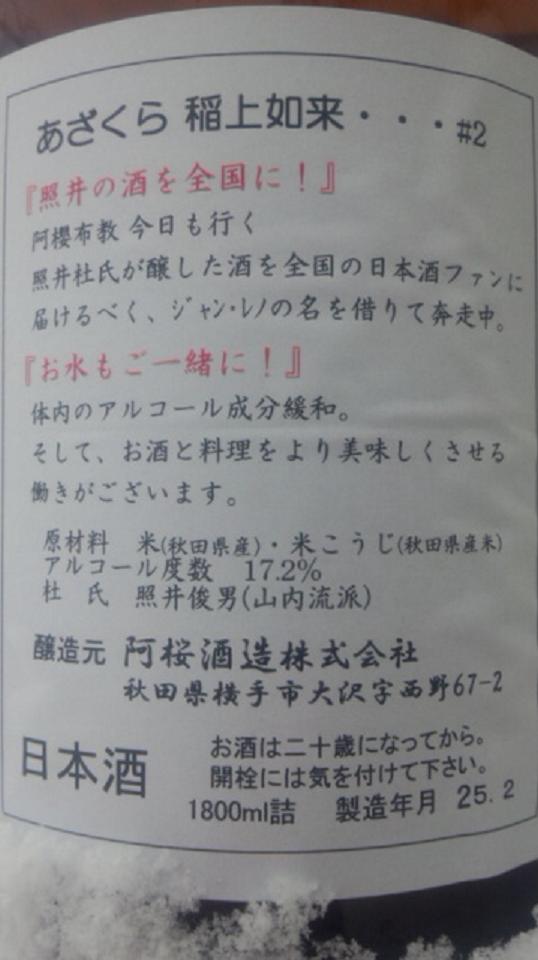 あざくら 稲上如来・・・#2
『照井の酒を全国に！』
阿櫻布教 今日も行く
照井杜氏が醸した酒を全国の日本酒ファンに
届けるべく、ジャン・レノの名を借りて奔走中。
『お水もご一緒に！』
体内のアルコール成分緩和。
そして、お酒と料理をより美味しくさせる
働きがございます。
原材料 米(秋田県産)・米こうじ(秋田県産米)
アルコール度数 17.2%
杜 氏 照井俊男(山内流派)
醸造元 阿桜酒造株式会社
秋田県横手市大沢字西野67-2
日本酒
お酒は二十歳になってから。
開栓には気を付けて下さい。
1800ml詰 製造年月 25.2